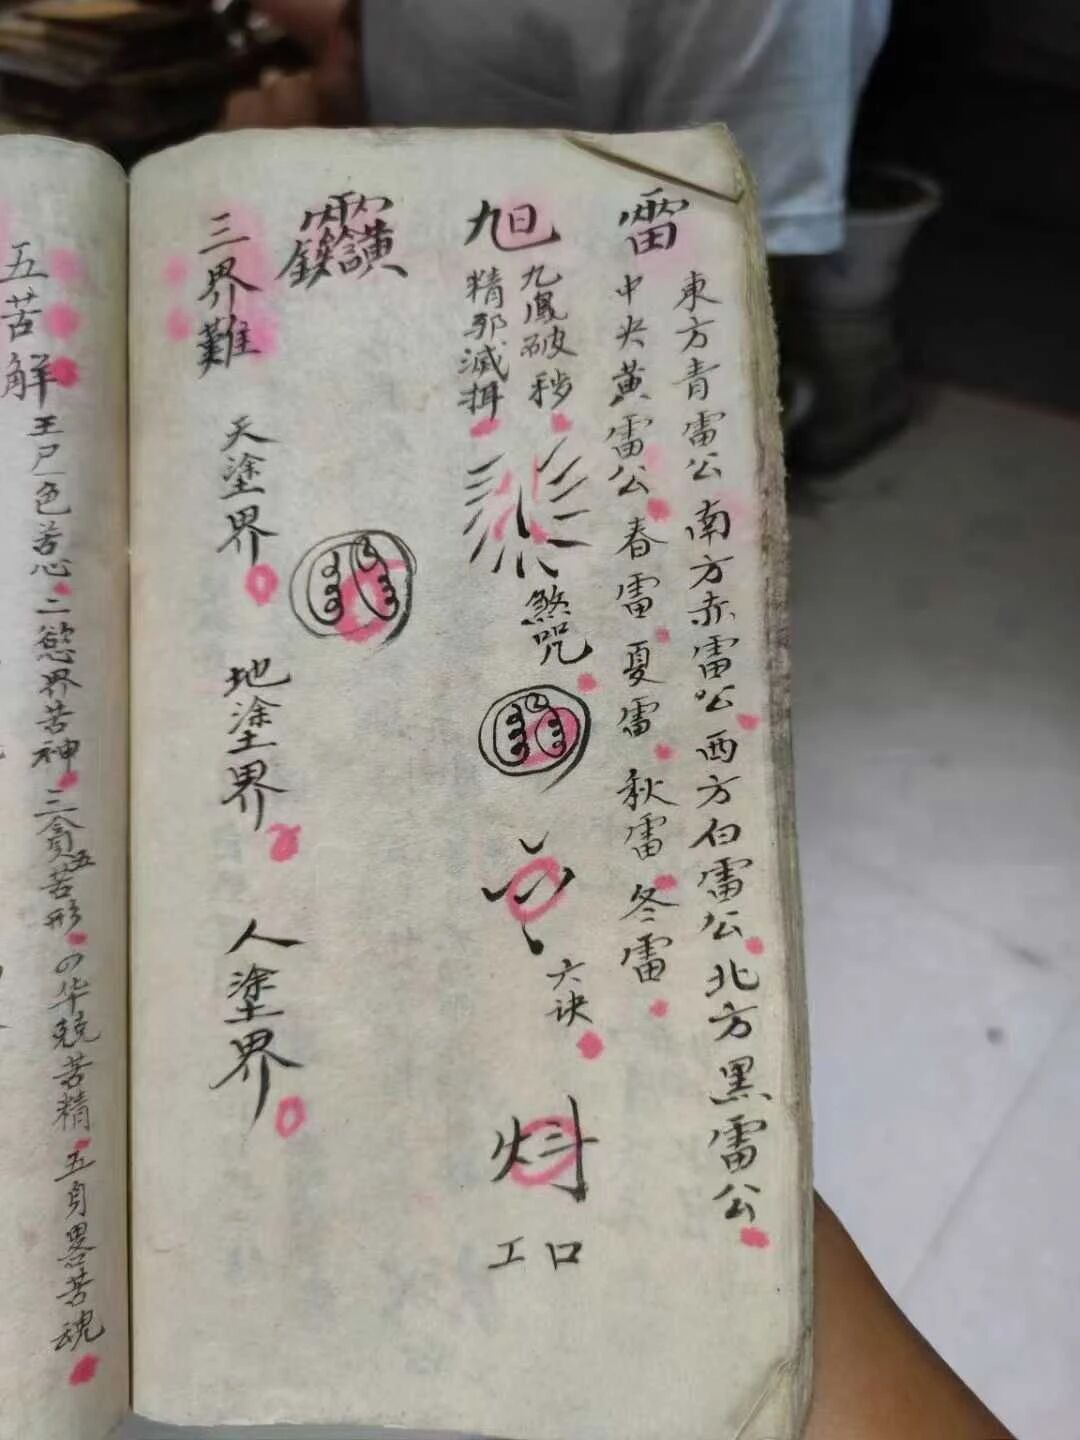 雷
東方青雷公南方赤雷公西方白雷公北方黑雷公
中央黄雷公春雷夏雷秋雷冬雷
旭
九鳳破秽
精邪滅
煞咒
六诀
炓
工口
三界難
天塗界
地塗界
人塗界
五苦解
王尸色苦心二慾界苦神三貪五苦形
华兢苦精五身苦魂